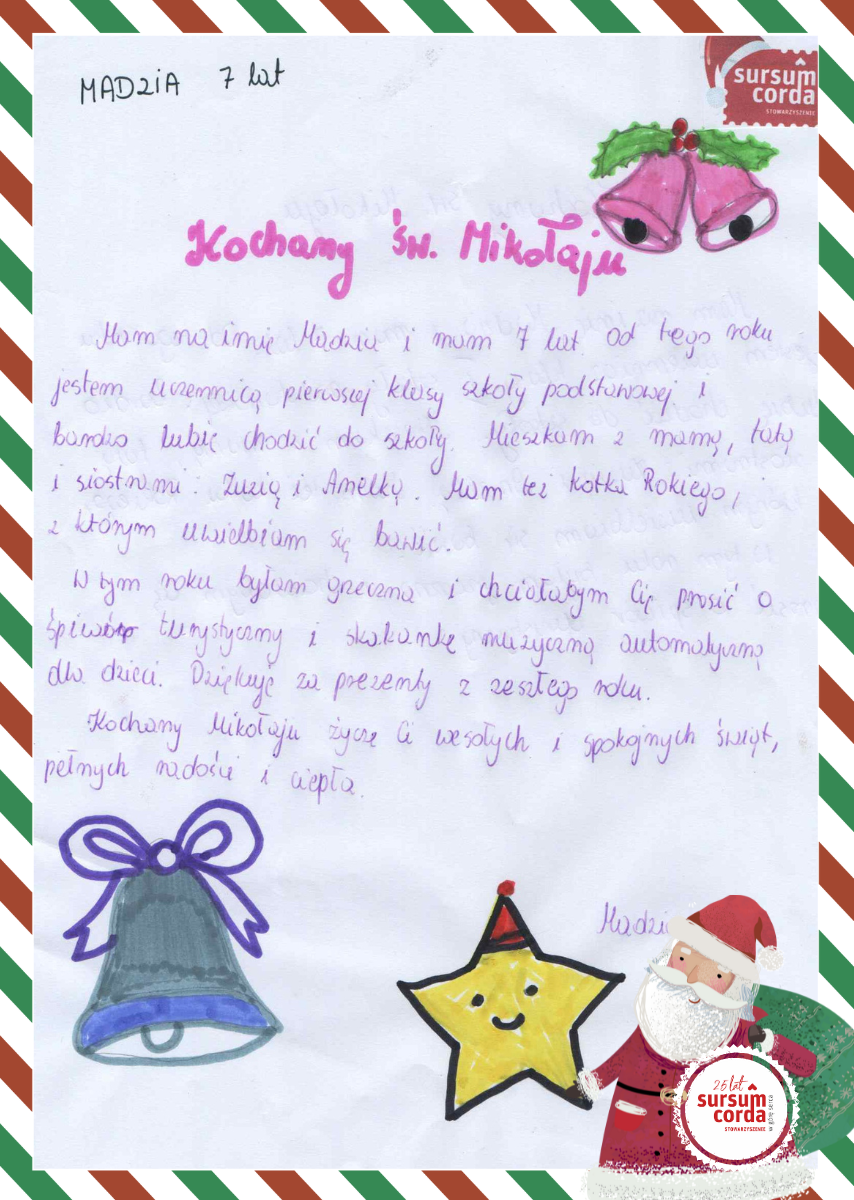 MADZIA 7 lat
sursum corda
STOWARZYSZENIE
Kochany św. Mikołaju
Mam na imię Madzia i mam 7 lat. Od tego roku
jestem uczennicą pierwszej klasy szkoły podstawowej i
bardzo lubię chodzić do szkoły. Mieszkam z mamą, tatą
i siostrami: Zuzią i Amelką. Mam też kotka Rokiego,
z którym uwielbiam się bawić.
W tym roku byłam grzeczna i chciałabym Cię prosić o
śpiwór turystyczny i skakankę muzyczną automatyczną
dla dzieci. Dziękuję za prezenty z zeszłego roku.
Kochany Mikołaju życzę Ci wesołych i spokojnych świąt,
pełnych radości i ciepła.
Madzia
25 lat
sursum corda
STOWARZYSZENIE
w górę serca